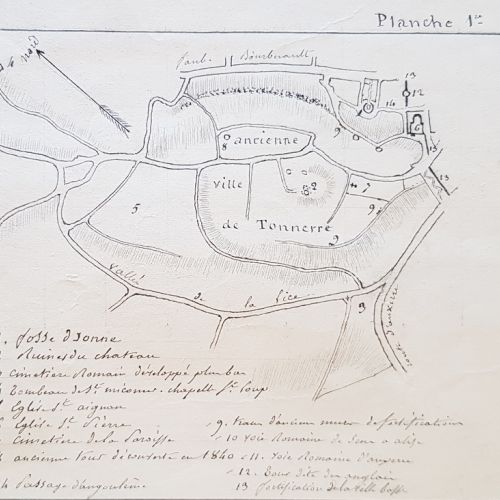 Planche 1re
faub. Bourberault
nord
13
12
14
6
13
13
9
8
ancienne
ville
2
7
9
5
de Tonnerre
9
vallée de la Lice
3
route d'auxerre
fosse dionne
Ruines du chateau
Cimetière Romain développé plus bas
Tombeau de St. micomer. chapelle St. Loup
Eglise St. aignan
Eglise St. Pierre
cimetière de la Paroisse
ancienne tour découverte en 1840
Passage d'angoulême
9. traces d'anciens murs de fortifications
10 voie Romaine de Sens a alise
11. voie Romaine d'auxerre
12. Tour dite des anglais
13 fortification de la ville basse